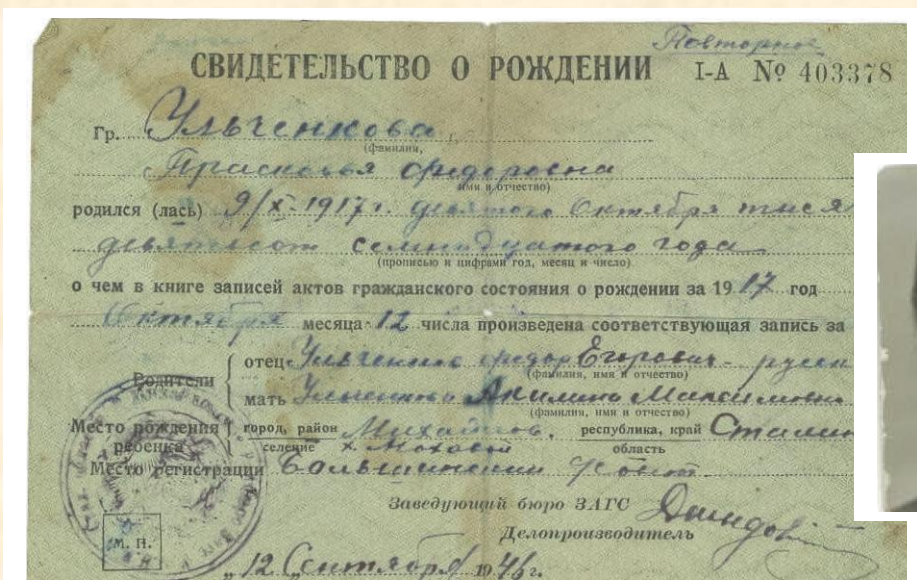 Повторное
СВИДЕТЕЛЬСТВО О РОЖДЕНИИ I-А № 403378
Гр. Ульченкова
(фамилия,
Прасковья Федоровна
имя и отчество)
родился (лась) 9/X-1917г. девятого Октября тыся
девятьсот семнадцатого года
(прописью и цифрами год, месяц и число)
о чем в книге записей актов гражданского состояния о рождении за 1917 год
Октября месяца 12 числа произведена соответствующая запись за
Родители
отец Ульченков Федор Егорович - русск
(фамилия, имя и отчество)
мать Акилина Максимовна
(фамилия, имя и отчество)
Место рождения ребенка
город, район республика, край Сталин
селение х. Моховой область
Место регистрации
Заведующий бюро ЗАГС
Делопроизводитель
М. П.
„12 Сентября 1946г.